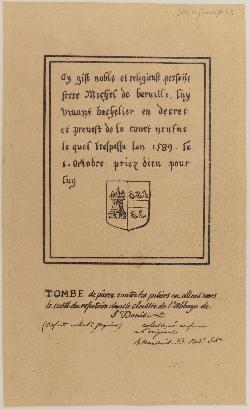 Cy gist noble et religieuse persone
frere Michel de barville, luy
vivant bachelier en decret
et prevost de la court neufve
lequel trespassa lan 1589. le
6. Octobre priez dieu pour
luy
TOMBE de pierre contre les piliers en allant vers
le costé du refectoire dans le cloistre de l'Abbaye de
St Denis
collationné conforme
a l'original